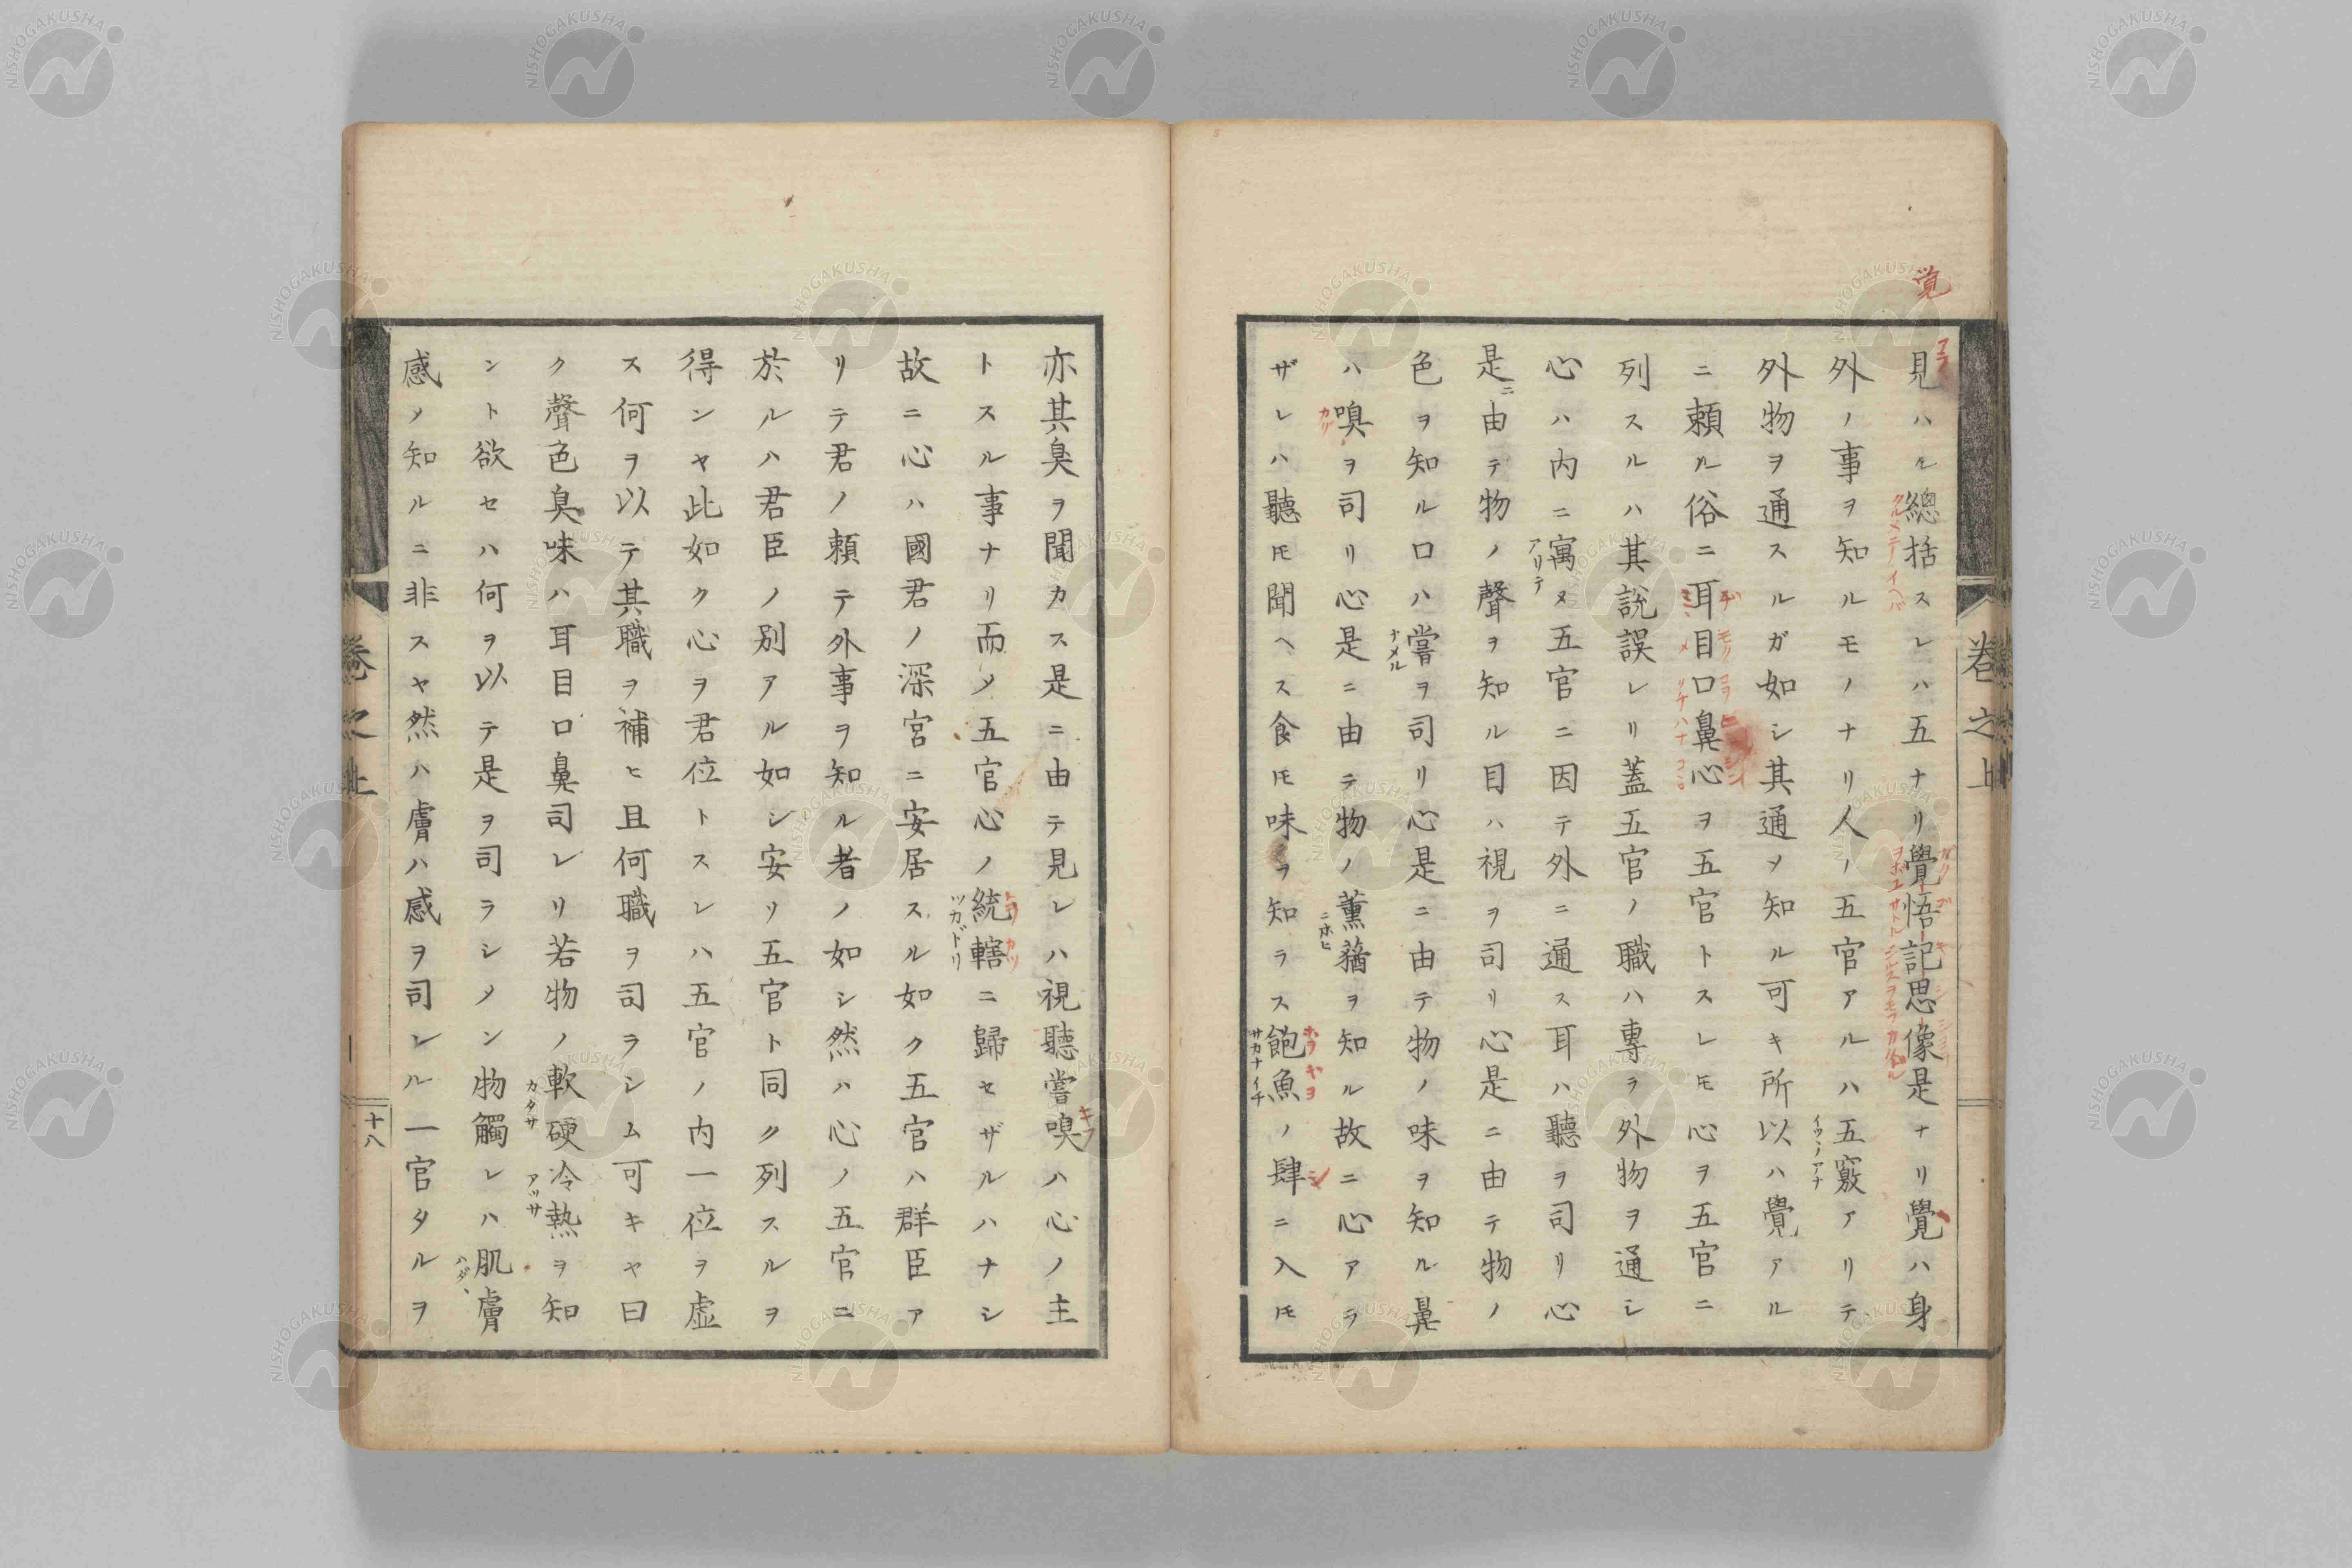 覚
見ハル總括スレハ五ナリ覺悟記思像是ナリ覺ハ身
外ノ事ヲ知ルモノナリ人ノ五官アルハ五竅アリテ
外物ヲ通スルガ如シ其通ヲ知ル可キ所以ハ覺アル
ニ頼ル俗ニ耳目口鼻心ヲ五官トスレ𪜈心ヲ五官ニ
列スルハ其說誤レリ蓋五官ノ職ハ專ラ外物ヲ通シ
心ハ内ニ寓メ五官ニ因テ外ニ通ス耳ハ聽ヲ司リ心
是ニ由テ物ノ聲ヲ知ル目ハ視ヲ司リ心是ニ由テ物ノ
色ヲ知ル口ハ嘗ヲ司リ心是ニ由テ物ノ味ヲ知ル鼻
ハ嗅ヲ司リ心是ニ由テ物ノ薫蕕ヲ知ル故ニ心アラ
ザレハ聽𪜈聞ヘス食𪜈味ヲ知ラス飽魚ノ肆ニ入𪜈
卷之上
亦其臭ヲ聞カス是ニ由テ見レハ視聽嘗嗅ハ心ノ主
トスル事ナリ而メ五官心ノ統轄ニ歸セザルハナシ
故ニ心ハ國君ノ深宮ニ安居スル如ク五官ハ群臣ア
リテ君ノ頼テ外事ヲ知ル者ノ如シ然ハ心ノ五官ニ
於ルハ君臣ノ別アル如シ安リ五官ト同ク列スルヲ
得ンヤ此如ク心ヲ君位トスレハ五官ノ内一位ヲ虚
ス何ヲ以テ其職ヲ補ヒ且何職ヲ司ラシム可キヤ曰
ク聲色臭味ハ耳目口鼻司レリ若物ノ軟硬冷熱ヲ知
ント欲セハ何ヲ以テ是ヲ司ラシメン物觸レハ肌膚
感ノ知ルニ非スヤ然ハ膚ハ感ヲ司ル一官タルヲ
卷之上
十八